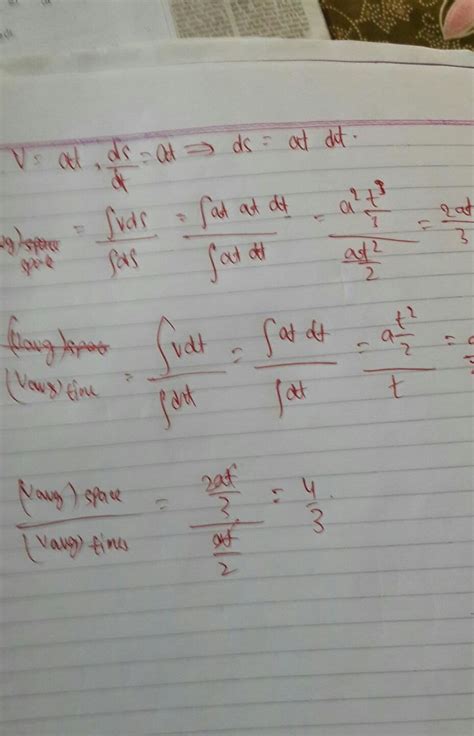 V = at , ds/dt = at ⇒ ds = at dt.
space = ∫vds / ∫ds = ∫at at dt / ∫at dt = a² t³/3 / at²/2 = 2at/3
(Vavg) space
(Vavg) time = ∫vdt / ∫dt = ∫at dt / ∫dt = a t²/2 / t =
(Vavg) space / (Vavg) times = 2at/3 / at/2 = 4/3.